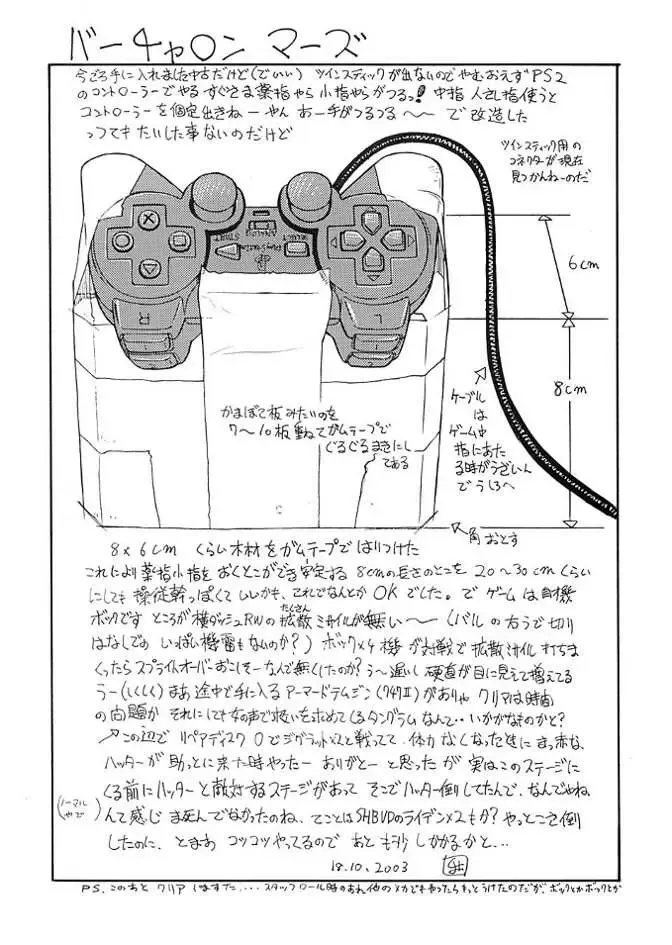 バーチャロン マーズ
今ごろ手に入れました中古だけど(でいい) ツインスティックが出ないのでやむおえずPS2
のコントローラーでやる すぐさま薬指やら小指やらがつるっ! 中指 人さし指使うと
コントローラーを固定出きねーやん あー手がつるつる〜〜 で改造した
ってもたいした事ないのだけど
ツインスティック用の
コネクターが現在
見つかんねーのだ
6cm
8cm
R
L
START
ANALOG
SELECT
PlayStation
かまぼこ板みたいのを
7〜10板重ねてガムテープで
ぐるぐるまきにし
てある
ケーブル
は
ゲーム中
指にあた
る時がうざいん
でうしろへ
角おとす
8×6cm くらい木材をガムテープではりつけた
これにより薬指小指をおくとこができ安定する 8cmの長さのとこを20〜30cmくらい
にしても操従幹っぽくていいかも、これでなんとかOKでした。で ゲームは自機
ボックです ところが横ダッシュRWの拡散ミサイルが無い〜(バルの右うで切り
たくさん
はなしでの いっぱい機雷もなんのか?) ボック×4機が対戦で拡散ミサイル打ちま
くったらスプライトオーバーおこしそーなんで無くしたのか? う〜遅いし硬直が目に見えて増えてる
うー(しくしく) まあ途中で手に入るアーマードテムジン(747Ⅱ)がありゃ クリアは時間
の問題か それにしても女の声で救いを求めてくるタングラムなんて・・いかがなものかと?
↗この辺で リペアディスク0でジグラット×2と戦ってて、体力なくなったときに まっ赤な
ハッターが助っとに来た時やったーありがとーと思ったが 実はこのステージに
くる前にハッターと敵対するステージがあって そこでハッター倒してたんで、なんでやねん
(ノーマルやで)
って感じ ま死んでなかったのね、てことはSHBVDのライデン×2もか? やっとこさ倒
したのに、とまあ コツコツやってるので あともう少しかかるかと...
18.10.2003
PS、このあと クリアしますた.... スタッフロール時の